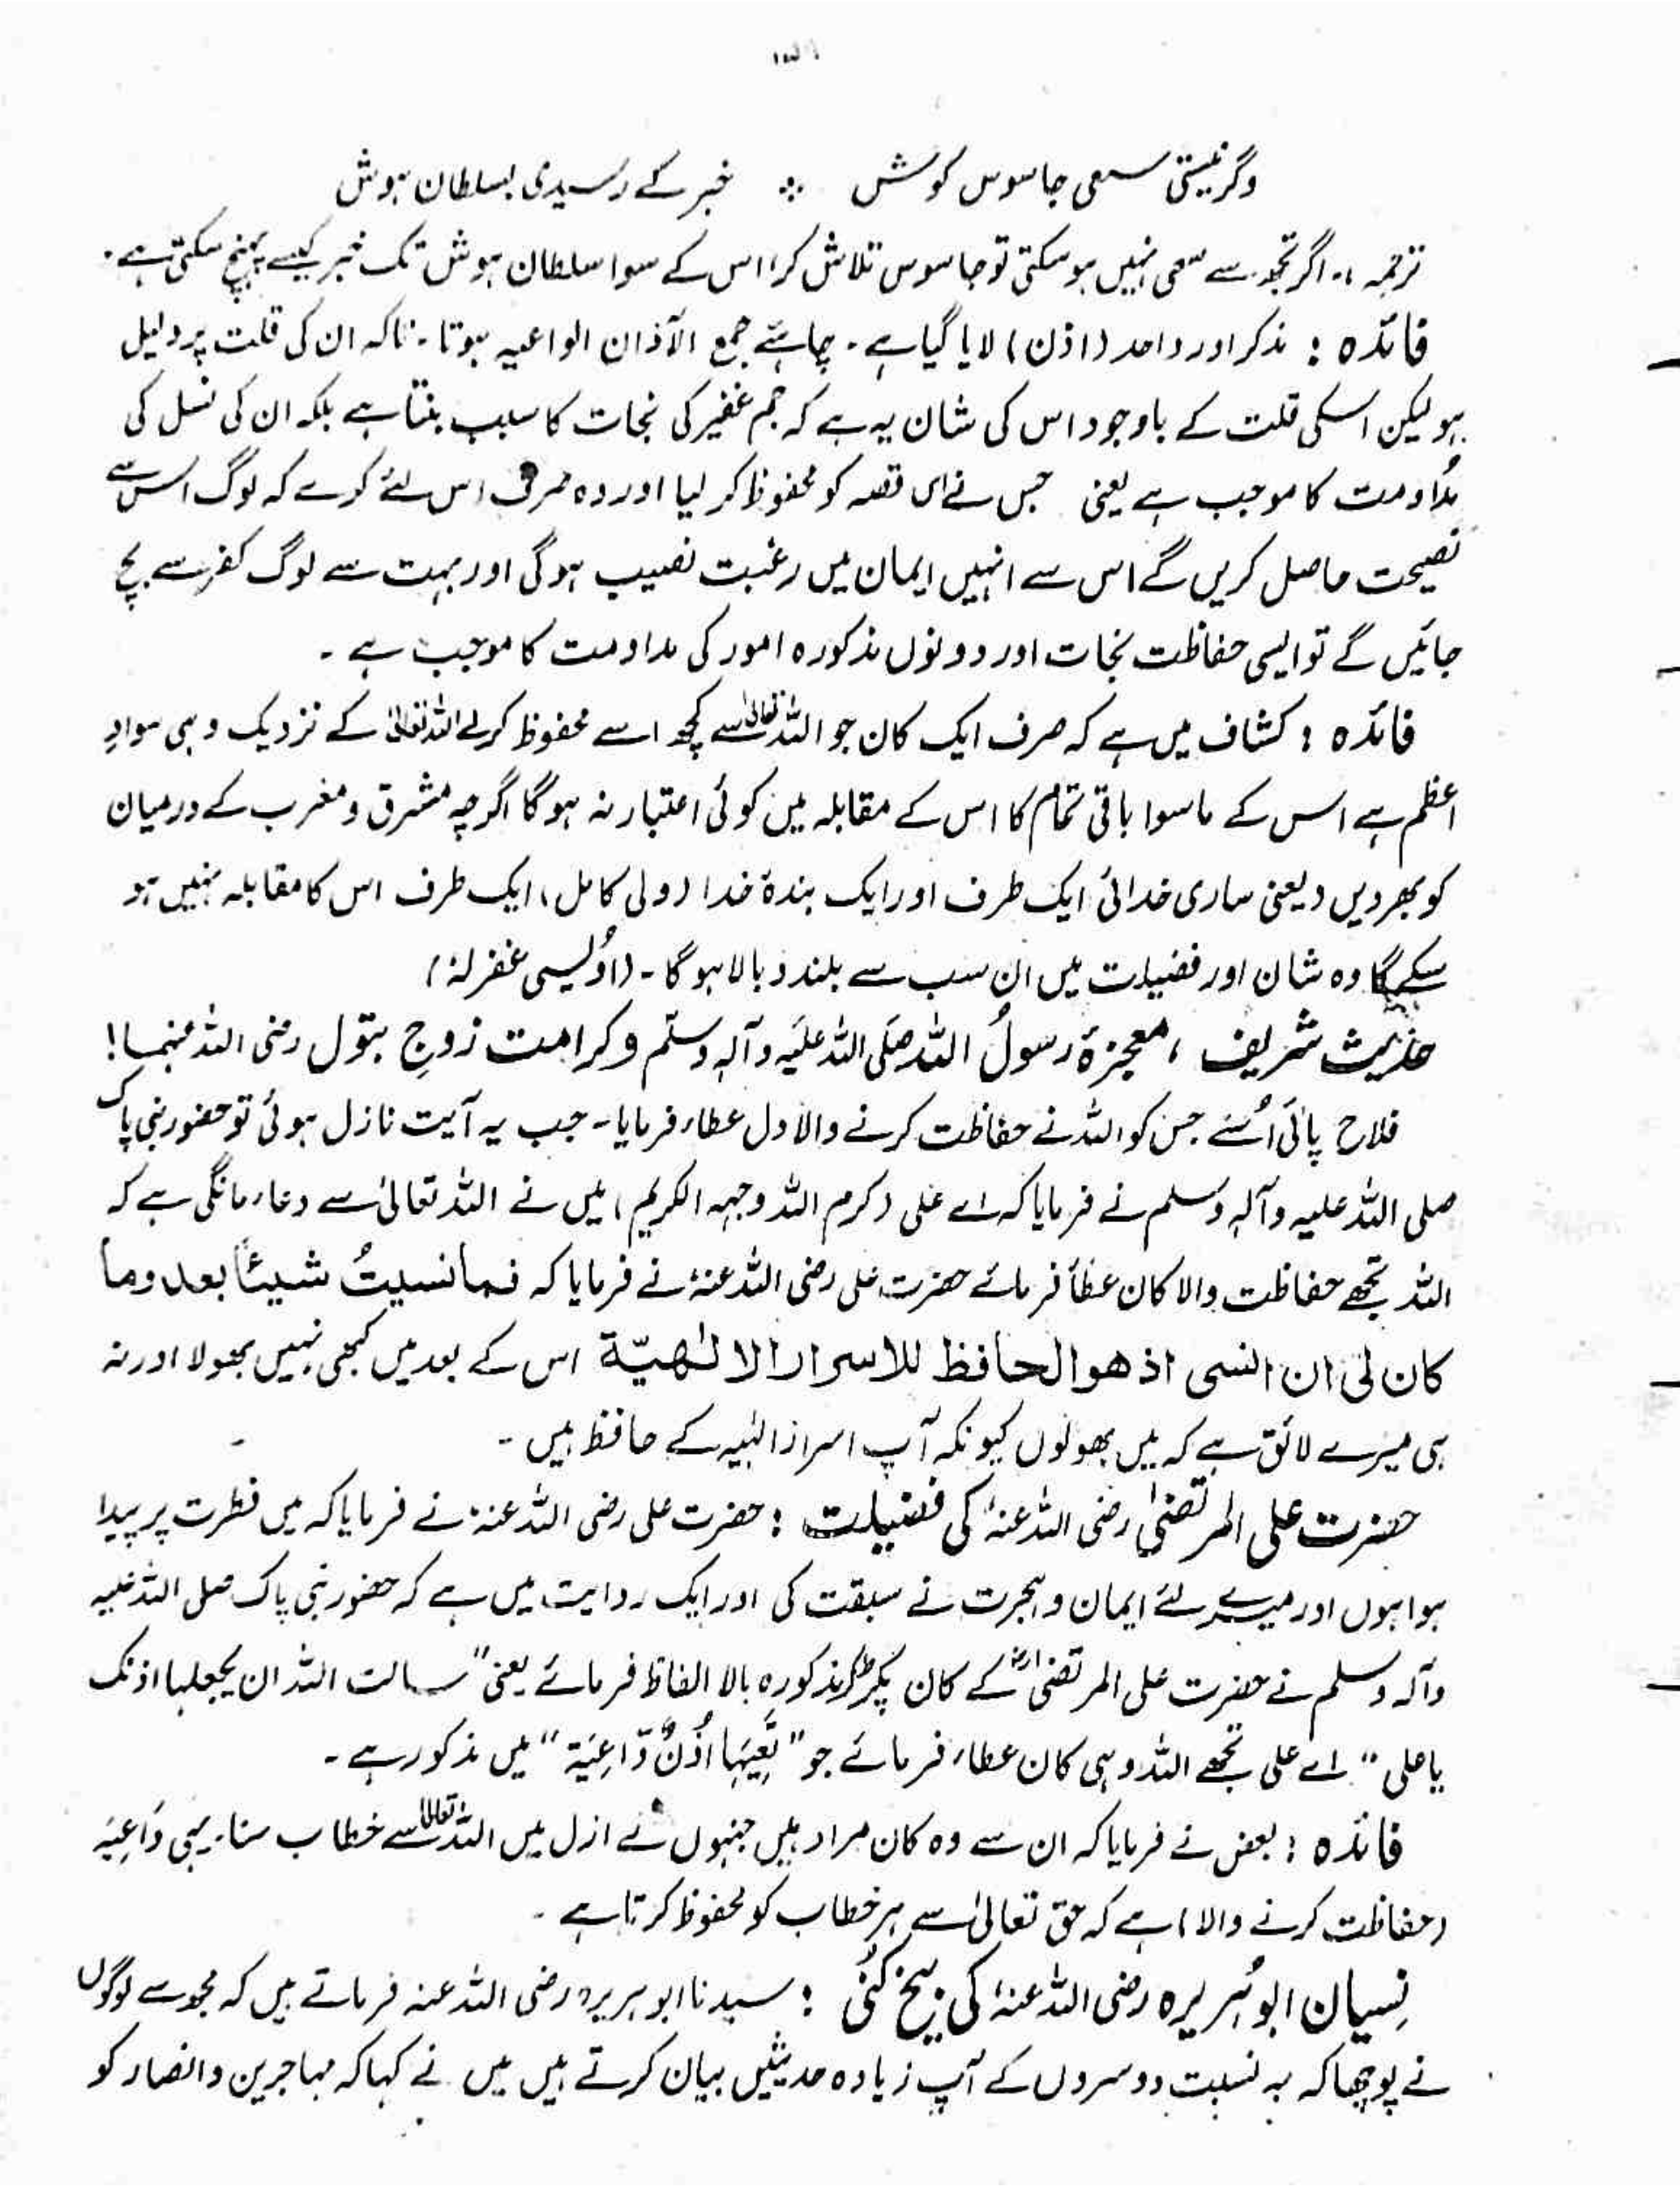 وگر نیستی سعی جاسوس کوش ؞ خبر کے رسیدی بسلطان ہوش
ترجمہ :۔ اگر تجھ سے سعی نہیں ہوسکتی تو جاسوس تلاش کر، اس کے سوا سلطان ہوش تک خبر کیسے پہنچ سکتی ہے۔
فائدہ : مذکر اور واحد (اذن) لایا گیا ہے ۔ چاہئے جمع الآذان الواعیہ ہوتا ۔ تاکہ ان کی قلت پر دلیل
ہو لیکن اسکی قلت کے باوجود اس کی شان یہ ہے کہ جم غفیر کی نجات کا سبب بنتا ہے بلکہ ان کی نسل کی
مُداومت کا موجب ہے یعنی جس نے اس قصہ کو محفوظ کر لیا اور وہ صرف اس لئے کرے کہ لوگ اس سے
نصیحت حاصل کریں گے اس سے انہیں ایمان میں رغبت نصیب ہوگی اور بہت سے لوگ کفر سے بچ
جائیں گے تو ایسی حفاظت نجات اور دونوں مذکورہ امور کی مداومت کا موجب ہے ۔
فائدہ : کشاف میں ہے کہ صرف ایک کان جو اللہ تعالیٰ سے کچھ اسے محفوظ کرلے اللہ تعالیٰ کے نزدیک وہی سوادِ
اعظم ہے اس کے ماسوا باقی تمام کا اس کے مقابلہ میں کوئی اعتبار نہ ہوگا اگرچہ مشرق و مغرب کے درمیان
کو بھر دیں (یعنی ساری خدائی ایک طرف اور ایک بندۂ خدا (ولی کامل) ایک طرف اس کا مقابلہ نہیں ہو
سکے گا وہ شان اور فضیلت میں ان سب سے بلند و بالا ہوگا ۔ (اُویسی غفرلہٗ)
حدیث شریف ، معجزۂ رسولُ اللہ صَلَی اللہ عَلَیہ وآلہٖ وسَلّم و کرامت زوجِ بتول رضی اللہ عنہما!
فلاح پائی اُسنے جس کو اللہ نے حفاظت کرنے والا دل عطاء فرمایا ۔ جب یہ آیت نازل ہوئی تو حضور نبی پاک
صلی اللہ علیہ وآلہٖ وسلم نے فرمایا کہ اے علی (کرم اللہ وجہہ الکریم) میں نے اللہ تعالیٰ سے دعاء مانگی ہے کہ
اللہ تجھے حفاظت والا کان عطأ فرمائے حضرت علی رضی اللہ عنہٗ نے فرمایا کہ فما نسیتُ شیئًا بعد وما
کان لی ان انسی اذ هو الحافظ للاسرار الالٰهیّة اس کے بعد میں کبھی نہیں بھولا اور نہ
ہی میرے لائق ہے کہ میں بھولوں کیونکہ آپ اسرار الٰہیہ کے حافظ ہیں ۔
حضرت علی المرتضیٰ رضی اللہ عنہٗ کی فضیلت : حضرت علی رضی اللہ عنہٗ نے فرمایا کہ میں فطرت پر پیدا
ہوا ہوں اور میرے لئے ایمان و ہجرت نے سبقت کی اور ایک روایت میں ہے کہ حضور نبی پاک صلی اللہ علیہ
وآلہ وسلم نے حضرت علی المرتضیٰ رضؓ کے کان پکڑ کر مذکورہ بالا الفاظ فرمائے یعنی "سالت اللہ ان یجعلہا اذنک
یا علی" اے علی تجھے اللہ وہی کان عطاء فرمائے جو "تَعِیَہَا اُذُنٌ وَّاعِیَۃ" میں مذکور ہے ۔
فائدہ : بعض نے فرمایا کہ ان سے وہ کان مراد ہیں جنہوں نے ازل میں اللہ تعالیٰ سے خطاب سنا ۔ یہی وَاعِیَہ
(حفاظت کرنے والا) ہے کہ حق تعالیٰ سے ہر خطاب کو محفوظ کرتا ہے ۔
نِسیان ابوہُریرہ رضی اللہ عنہٗ کی بیخ کَنُی : سیدنا ابوہریرہ رضی اللہ عنہ فرماتے ہیں کہ مجھ سے لوگوں
نے پوچھا کہ بہ نسبت دوسروں کے آپ زیادہ حدیثیں بیان کرتے ہیں میں نے کہا کہ مہاجرین و انصار کو